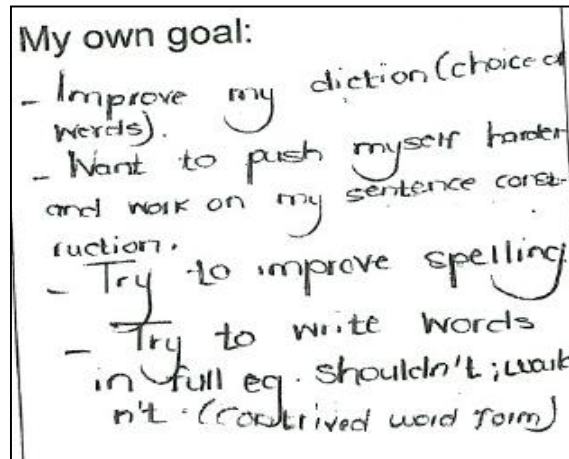 My own goal:
- Improve my diction (choice of
words).
- Want to push myself harder
and work on my sentence const-
ruction.
- Try to improve spelling
- Try to write words
in full eg. shouldn't;
n't. (contrived word form)